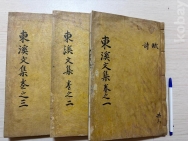 東溪文集卷之一
詩
東溪文集卷之二
東溪文集卷之三